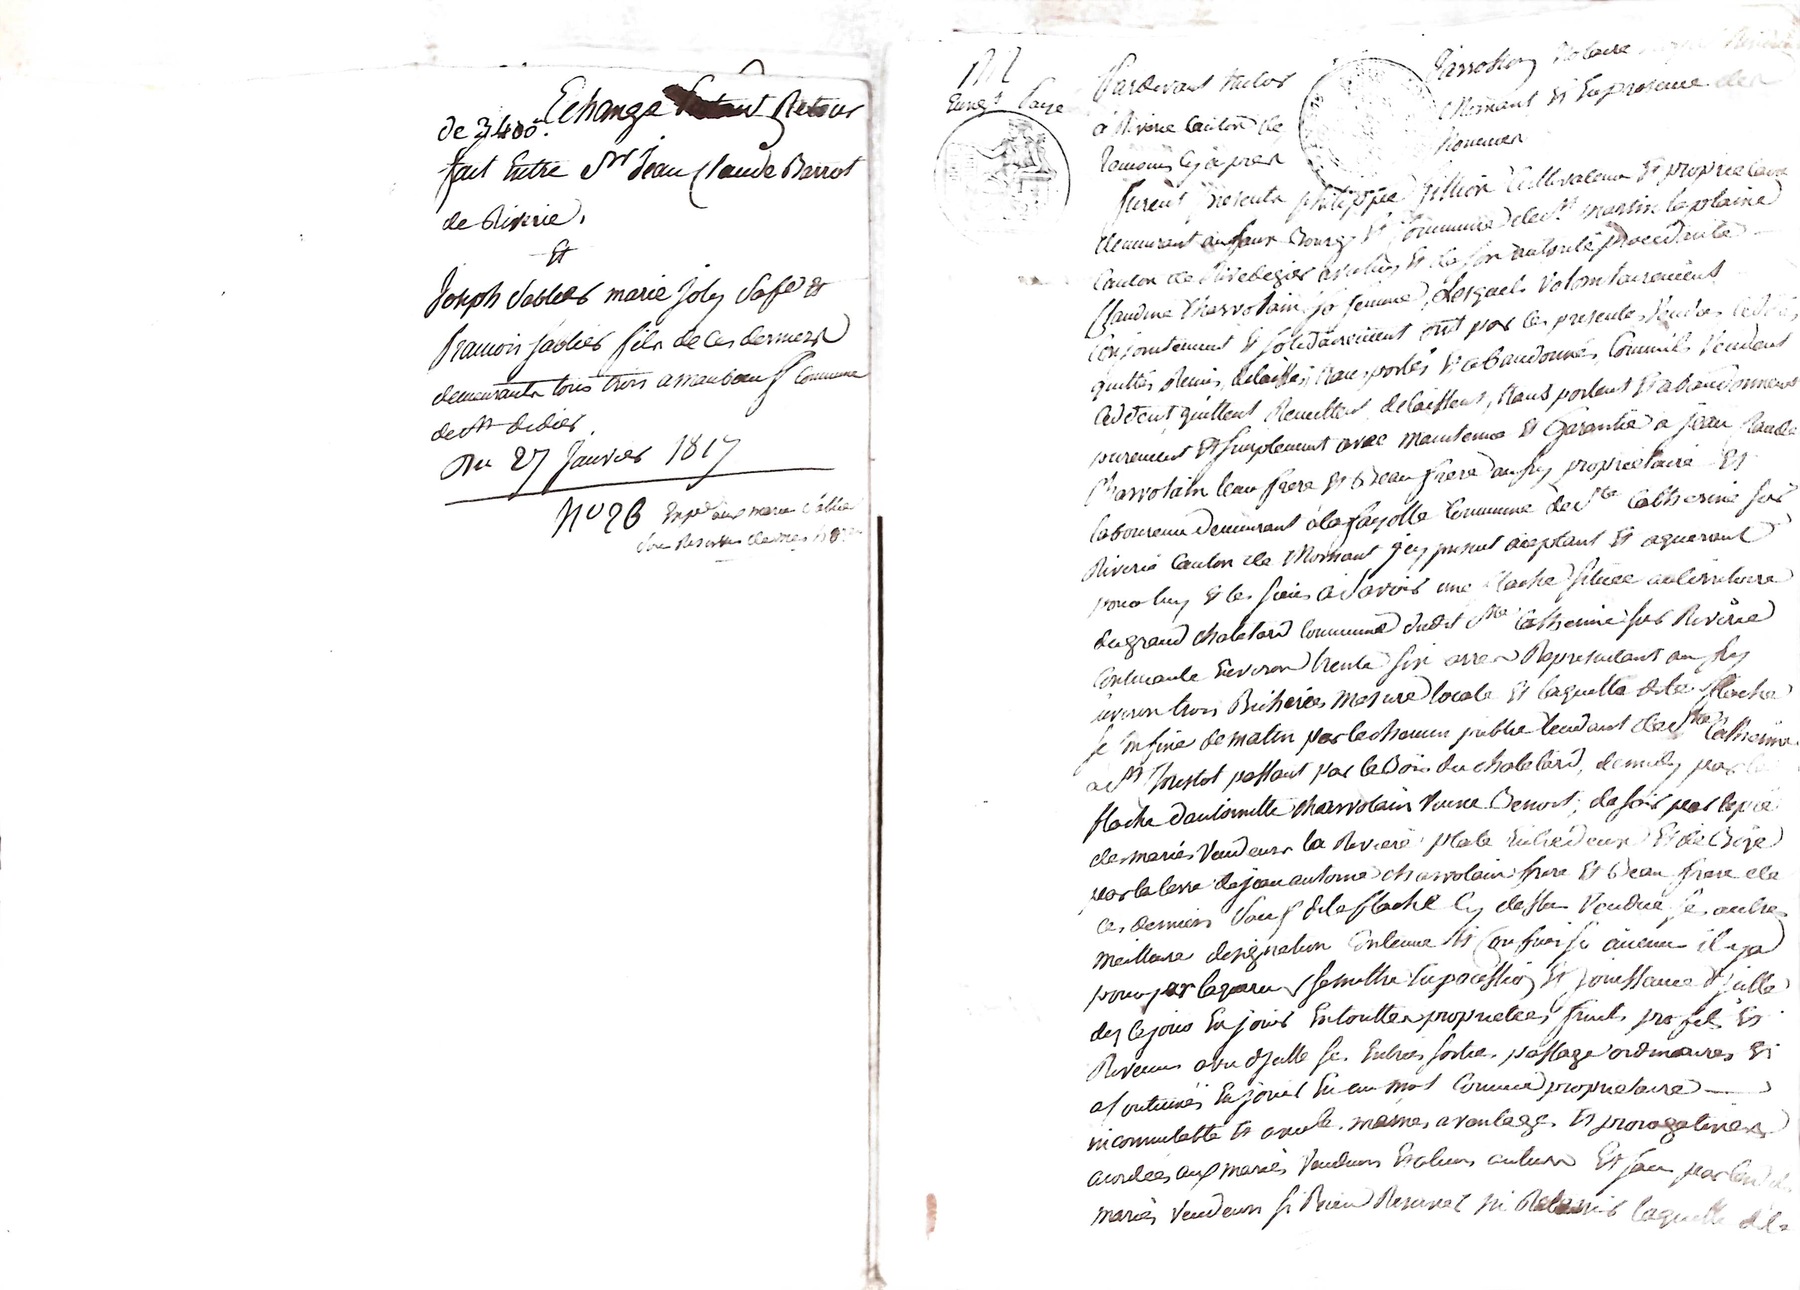 Echange Portant Retour
de 3400.
fait Entre Sr Jean Claude Barrot
de Riverie,
Et
Joseph Sablier marie joly sa fe et
francois Sablier fils de ces derniers
demeurants tous trois a commune
de St didier
Du 27 Janvier 1817
No 26

Enregt Payé
Pardevant Notaire
à Riverie Canton de Mornant Et En presence des
Temoins Cy après Nommés
furent presents philippe fillion Cultivateur Et proprietaire
demeurant au faux Bourg Et Commune de St martin la plaine
Canton de Rivedegier avec luy Et de son autorité procedante
Claudine Charvolain sa femme, Lesquels Volontairement
Conjointement Et solidairement ont par les presentes Vendus Cedés,
quittés Remis, delaissés, transportés Et abandonnés, Comme ils Vendent
Cedent, quittent Remettent, delaissent, transportent Et abandonnent
purement Et simplement avec maintenue Et Garantie a jean
Charvolain leur frere Et Beau frere aussy proprietaire Et
laboureur demeurant à la fayolle Commune de Ste Catherine sur
Riverie Canton de Mornant icy present aceptant Et aquerant
pour luy Et les siens a savoir une flache située au territoire
du grand chatelard Commune dudit Ste Catherine sur Riverie
Contenante Environ trente six ares Representant aussy
environ trois Bicherées Mesure locale Et laquelle dite flache
se Confine de matin par le chemin public tendant de Ste Catherine
a St passant par le Bois du chatelard, de midy par la
flache d'antoinette Charvolain Veuve Benoit, de soir par le pré
des mariés Vendeurs la Riviere Entre deux Et de Bize
par la terre de jean antoine charvolain frere Et Beau frere de
ces derniers sauf dite flache Cy dessus Vendue ses autres
meilleures designation Contenue Et Confins si aucuns il y a
pour par laquereur se mettre En pocession Et jouissance d'jcelle
dez ce jour En jouir En toutte proprietée, fruits profits Et
Revenus avec d'jcelle ses Entrées sortie, passage ordinaires Et
acoutumés En jouir En un mot Comme proprietaire
incommutable Et avec les mêmes avantages Et prerogatives
acordées aux mariés Vendeurs Et leurs auteurs Et sans par lesdits
mariés Vendeurs si Rien Reserver ni Retenir laquelle dite